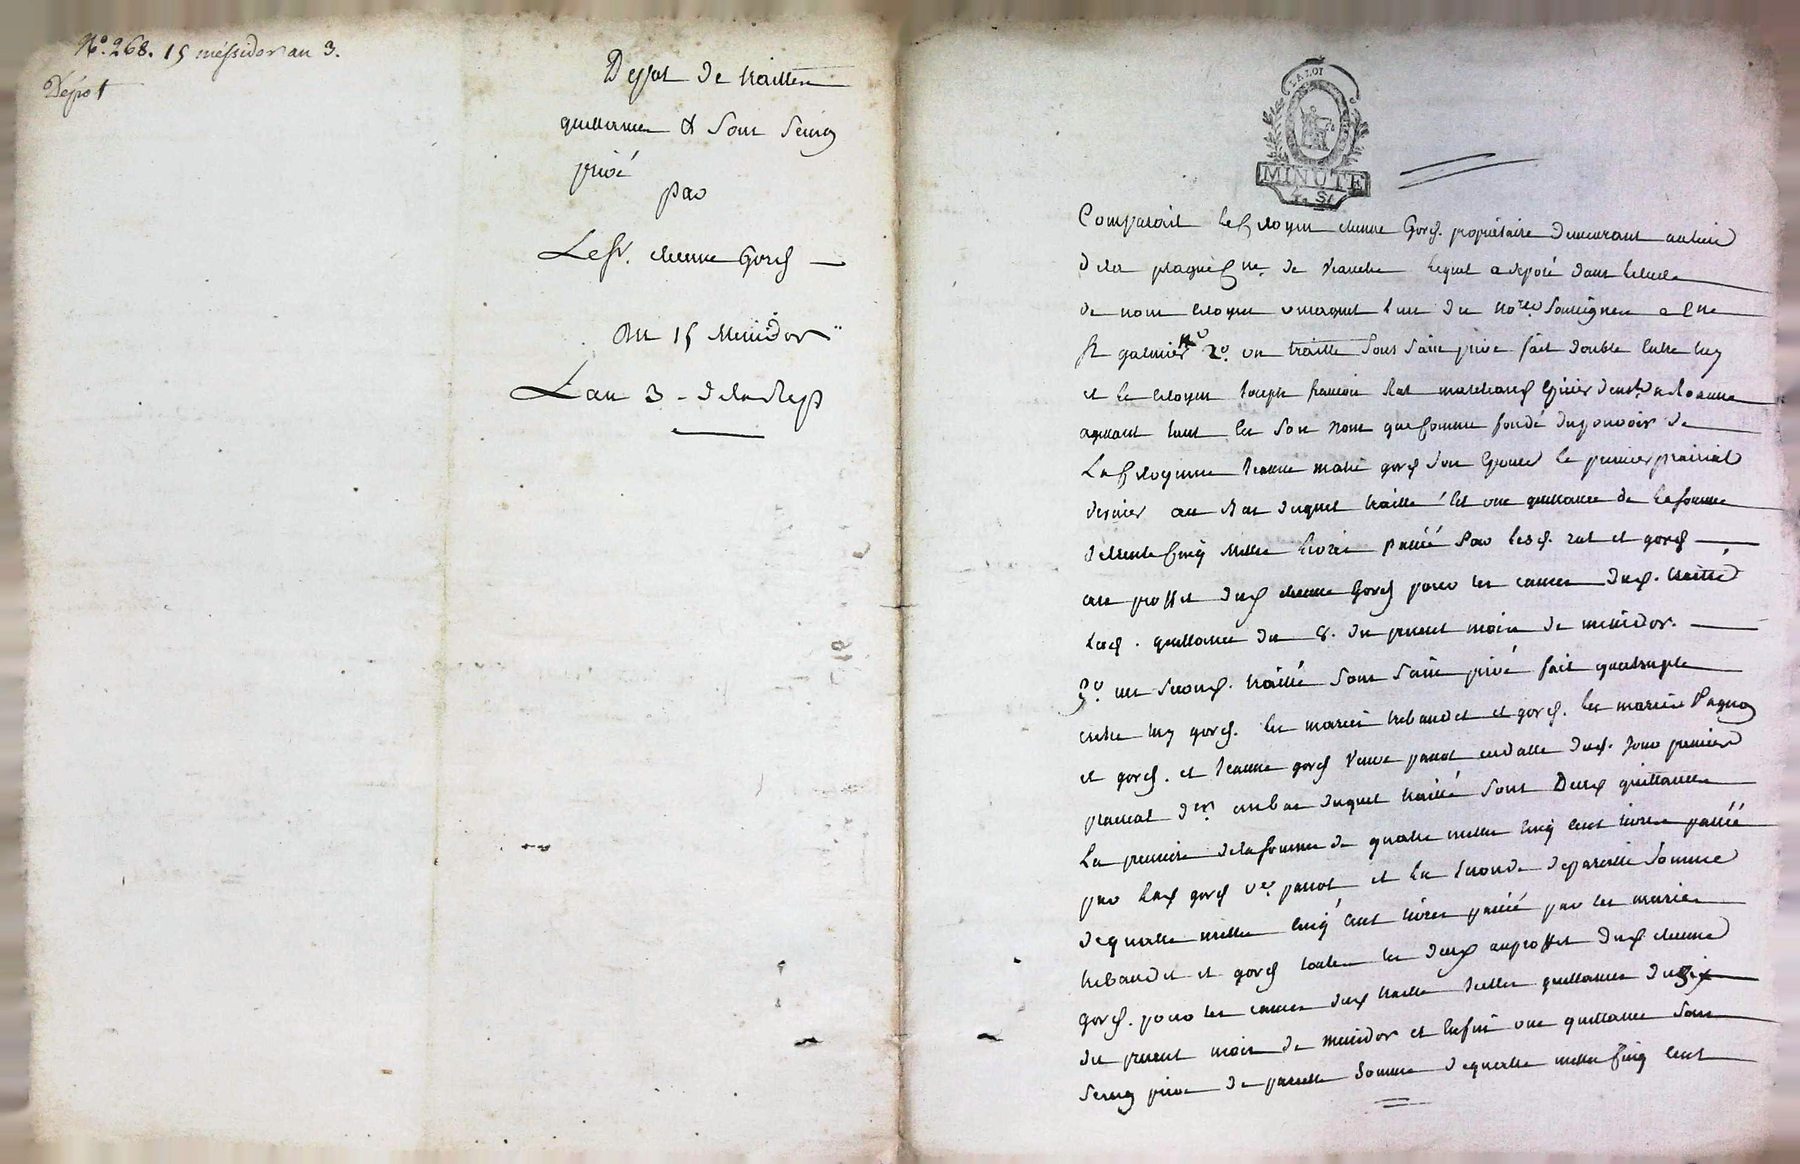 N.° 268. 15 méssidor an 3.
Dépot
Depot de traittes
quittances & Sous Seing
privé
par
Le sr. etienne Gord
Du 15 Messidor
L'an 3 - de la Rep
LA LOI
MINUTE
4. S.
Comparait le Citoyen etienne Gord. propriétaire demeurant au lieu
de la plagne Cne. de lequel a deposé dans l'etude
de nous citoyen l'un des Nores Soussignes a Cne
St galmier 1° un traitté Sous Sain privé fait double entre luy
et le citoyen Joseph francois Rat marchand Epicier de Roanne
agissant tant en Son Nom que comme fondé du pouvoir de
La Citoyenne Jeanne marie gord Son Epouse le premier prairial
dernier au Bas duquel traitté Est une quittance de la somme
de trente Cinq Mille livres passée Par lesd. rat et gord
au proffit dud etienne Gord pour les causes dud. traitté
Lad. quittance du 8. du present mois de messidor.
2° un second. traitté Sous Sain privé fait quatruple
entre luy gord. les mariés trebaudet et gord. les mariés Pagnon
et gord. et Jeanne gord Veuve parrot en datte dud. Jour premier
prairial der. au bas duquel traitté Sont Deux quittances
La premiere de la somme de quatre mille Cinq Cent livres passée
par Lad gord ve. parrot et la seconde de pareille Somme
de quatre mille Cinq Cent livres passée par les mariés
trebaudet et gord toutes les deux au proffit dud etienne
gord. pour les causes dud traitté quittances du
du present mois de messidor et Enfin une quittance Sous
Seing privé de pareille Somme de quatre mille Cinq Cent